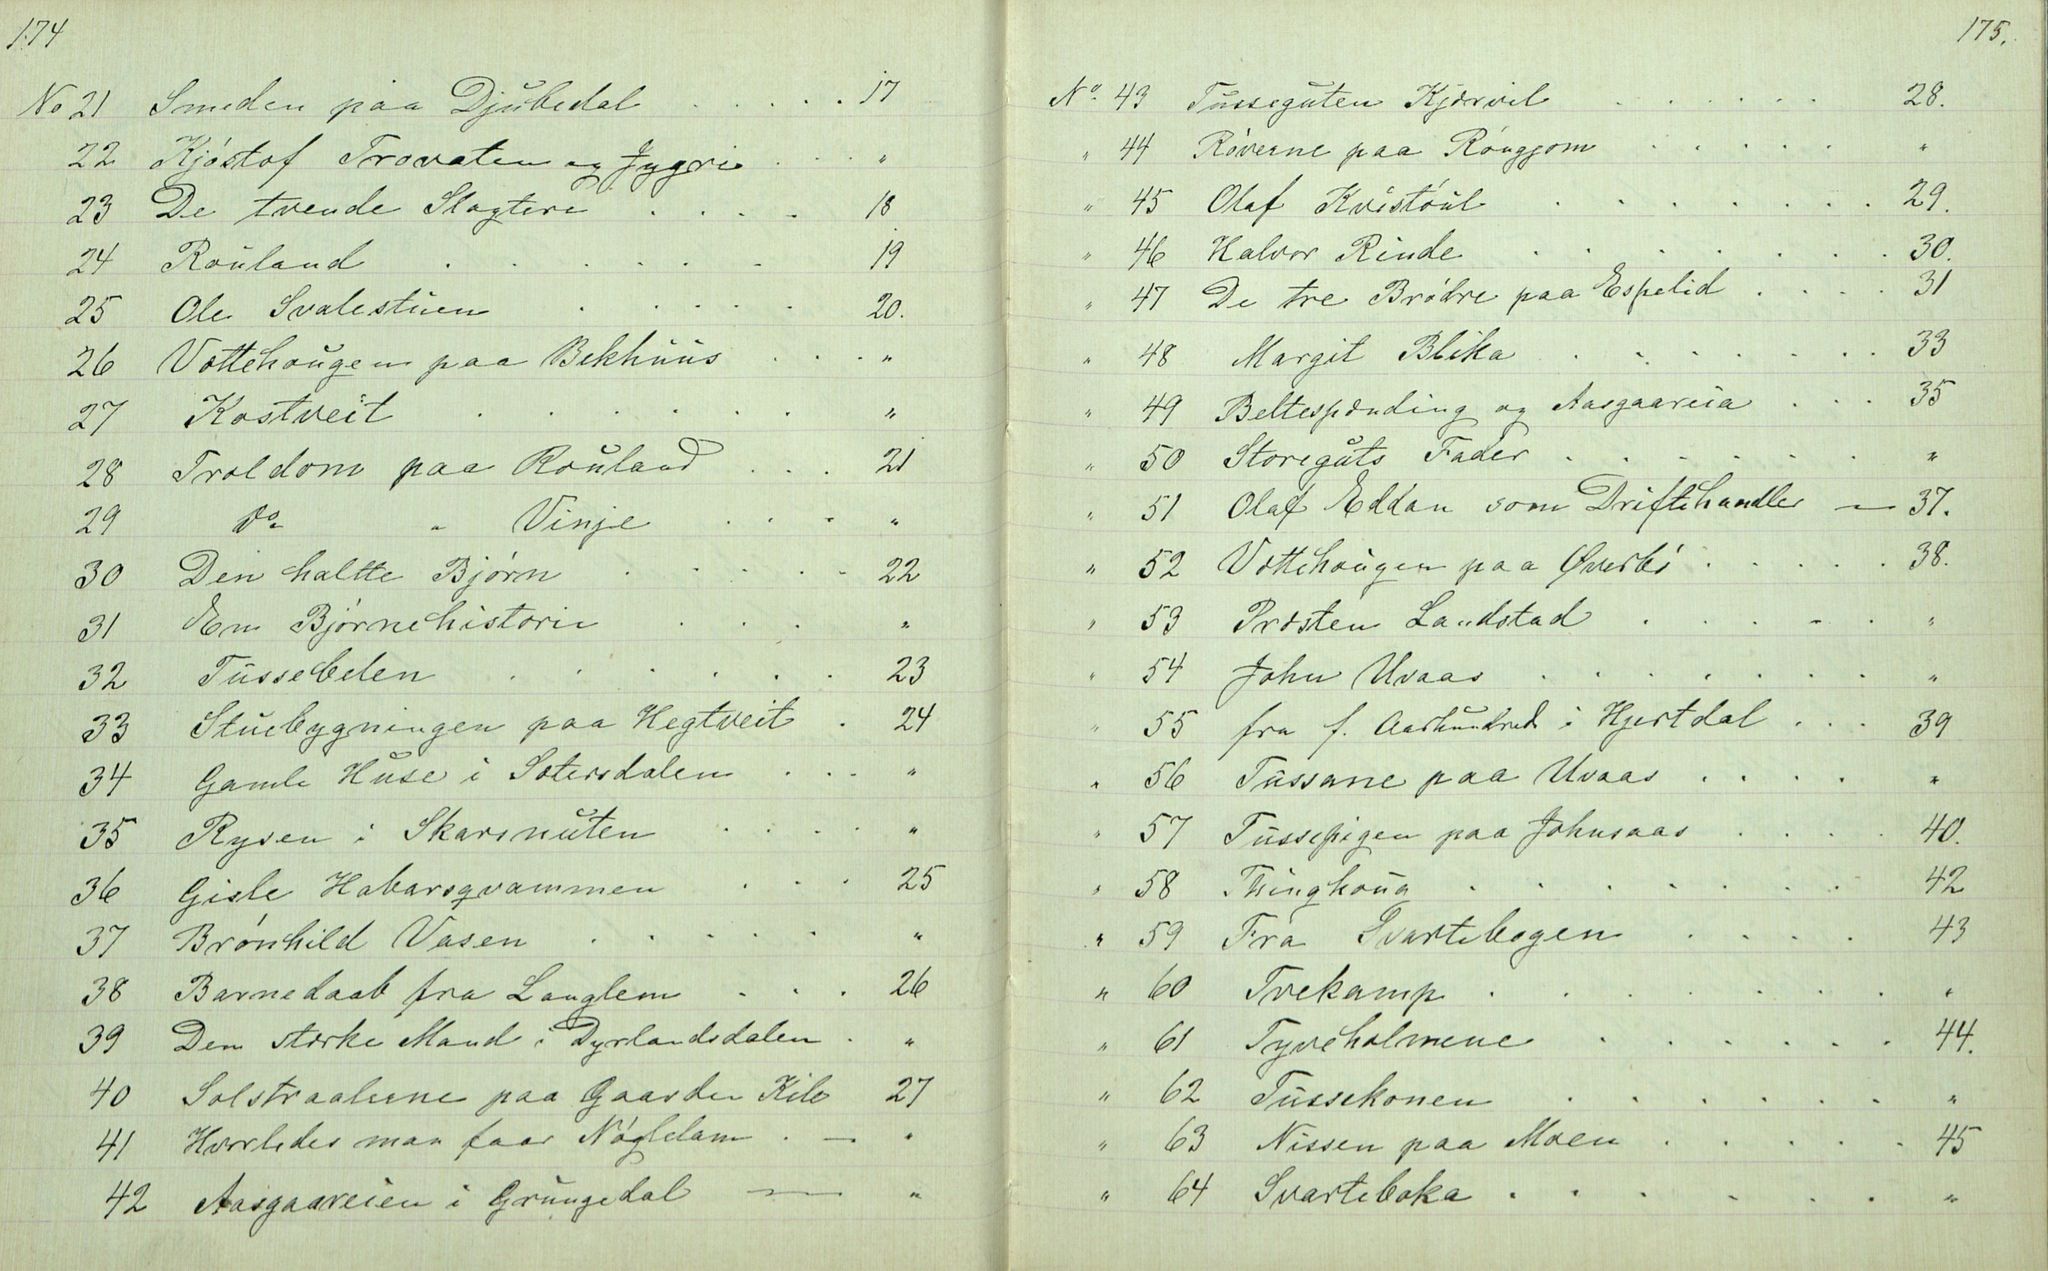 174
No 21 Smeden paa Djubedal . . . . . 17
22 Kjóstof Trovaten og Jygri . . . "
23 De tvende Slagtere . . . . 18
24 Rouland . . . . . . 19
25 Ole Svalestuen . . . . . 20.
26 Vottehougen paa Bekhuus . . . "
27 Kostveit . . . . . . "
28 Troldom paa Rouland . . . 21
29 Do " Vinje . . . "
30 Den haltte Bjørn . . . . . 22
31 En Bjørnehistorie . . . "
32 Tussebelen . . . . . . 23
33 Stuebygningen paa Hegtveit . 24
34 Gamle Huse i Sætersdalen . . . "
35 Rysen i Skarsnuten . . . . "
36 Gisle Habarsqvammen . . . 25
37 Brónhild Vasen . . . . . "
38 Barnedaab fra Langlem . . . 26
39 Den stærke Mand i Dyrlandsdalen . "
40 Solstraalerne paa Gaarden Kile 27
41 Hvorledes man faar Nøglelam . — "
42 Aasgaareien i Grungedal — "
175.
No. 43 Tusseguten Kjørvil . . . . . . 28.
" 44 Róverne paa Róuggjom . . . . . "
" 45 Olaf Kvistóul . . . . . . . 29.
" 46 Halvor Rinde . . . . . . . 30.
" 47 De tre Brødre paa Espelid . . . . 31
" 48 Margit Blika . . . . . . . 33
" 49 Beltespænding og Aasgaareia . . . 35
" 50 Storeguts Fader . . . . . . "
" 51 Olaf Eddan som Driftehandler — 37.
" 52 Vottehougen paa Øverbó . . . . . 38.
" 53 Præsten Landstad . . . . . "
" 54 John Uvaas . . . . . . . "
" 55 fra f. Aarhundrede i Hjertdal . . . 39
" 56 Tussane paa Uvaas . . . . "
" 57 Tussepigen paa Johnsaas . . . . 40.
" 58 Thinghoug . . . . . . . 42
" 59 Fra Svartebogen . . . . 43
" 60 Tvekamp . . . . . . . "
" 61 Tyveholmene . . . . . . 44.
" 62 Tussekonen . . . . . . "
" 63 Nissen paa Moen . . . . . 45
" 64 Svarteboka . . . . . . . "